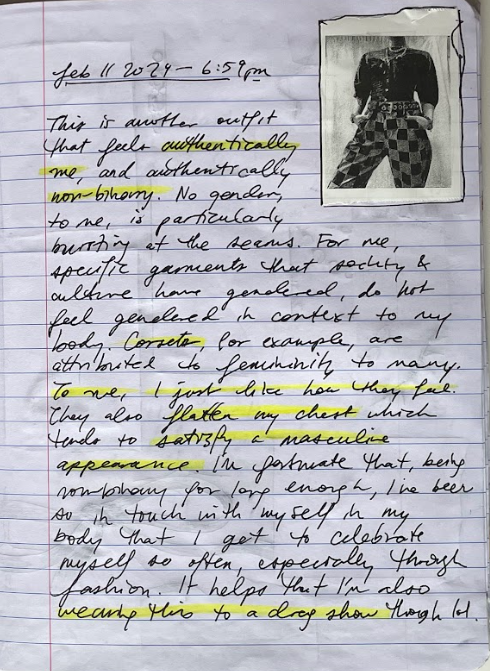 feb 11 2024 — 6:59pm
This is another outfit
that feels authentically
me, and authentically
non-binary. No gender,
to me, is particularly
bursting at the seams. For me,
specific garments that society &
culture have gendered, do not
feel gendered in context to my
body. Corsets, for example, are
attributed to femininity to many.
To me, I just like how they feel.
They also flatten my chest which
tends to satisfy a masculine
appearance. I'm fortunate that, being
non-binary for long enough, I've been
so in touch with myself in my
body that I get to celebrate
myself so often, especially through
fashion. It helps that I'm also
wearing this to a drag show though lol.